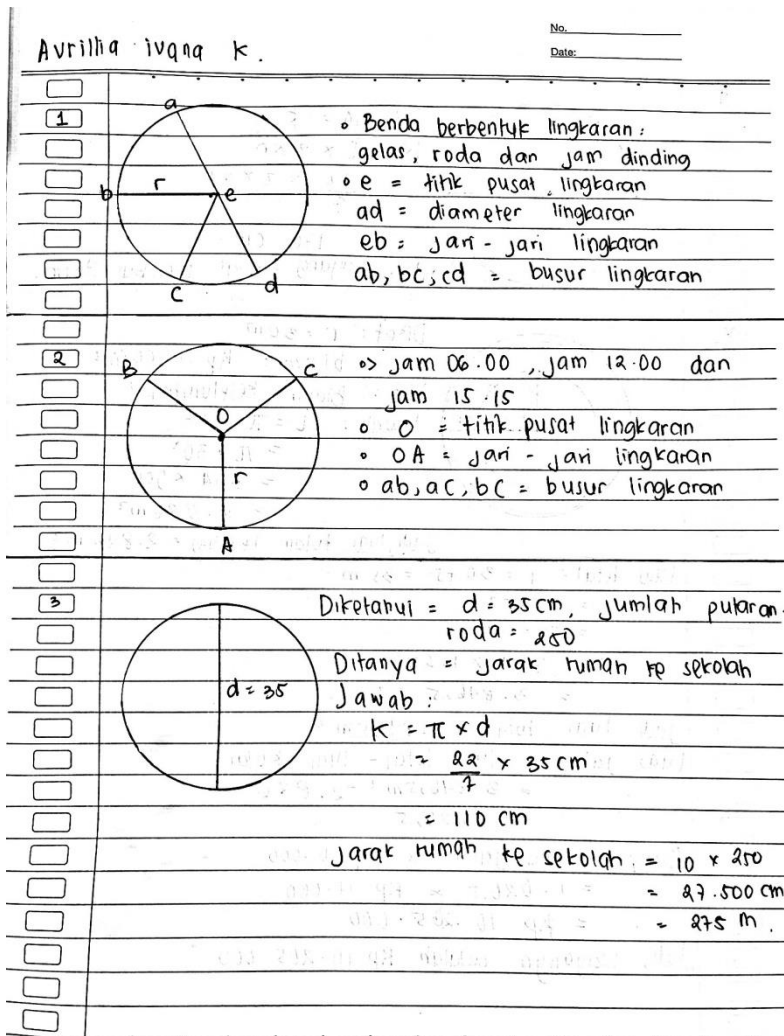 No.
Date:
Avrillia ivana K.
1
a
b
r
e
c
d
• Benda berbentuk lingkaran :
gelas, roda dan jam dinding
• e = titik pusat lingkaran
ad = diameter lingkaran
eb = jari - jari lingkaran
ab, bc, cd = busur lingkaran
2
B
C
O
r
A
•> jam 06.00 , jam 12.00 dan
jam 15.15
• O = titik pusat lingkaran
• OA = jari - jari lingkaran
• ab, ac, bc = busur lingkaran
3
d = 35
Diketahui = d = 35 cm, jumlah putaran
roda = 250
Ditanya = jarak rumah ke sekolah
Jawab :
K = π × d
= 22/7 × 35 cm
= 110 cm
jarak rumah ke sekolah = 10 × 250
= 27.500 cm
= 275 m.